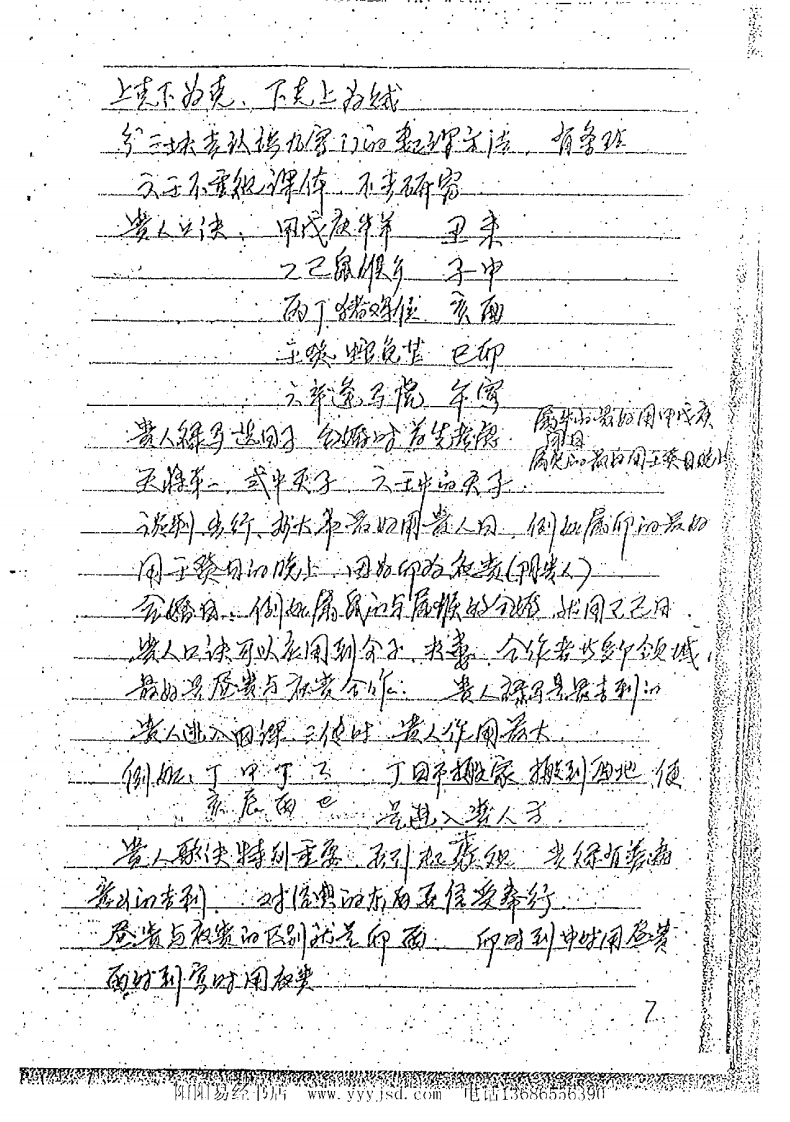 上克下为克、下克上为贼
分三大类认祸九宗门的整理方法，有
六壬不重视课体，不去研究
贵人口决：甲戊庚牛羊 丑未
乙己鼠猴乡 子申
丙丁猪鸡位 亥酉
壬癸蛇兔苍 巳卯
六辛逢马虎 午寅
属牛的最好用甲戊庚
日
属兔的最好用壬癸日晚上
贵人禄马选日子 合婚时首先考虑
天将第一，式中天子，六壬中的天子.
谈判、出行、大事最好用贵人日，例如属卯的最好
用壬癸日的晚上，因为卯为夜贵(阴贵人)
合婚日：例如属鼠的与属猴的合婚 就用乙己日.
贵人口诀可以应用到合子，求 合作者 多个领域，
最好是昼贵与夜贵合作： 贵人禄马是最吉利的
贵人进入四课 三传时 贵人作用最大.
例如：丁 甲 丁 乙 丁日 搬家 搬到西地 便
亥 辰 酉 巳 是进入贵人方.
贵人歌诀特别重要，
意义的吉利. 对经典的东西要信受奉行.
昼贵与夜贵的区别就是卯酉 卯时到申时用昼贵
酉时到寅时用夜贵
7
阳阳易经书店 www.yyyjsd.com 电话13686556390